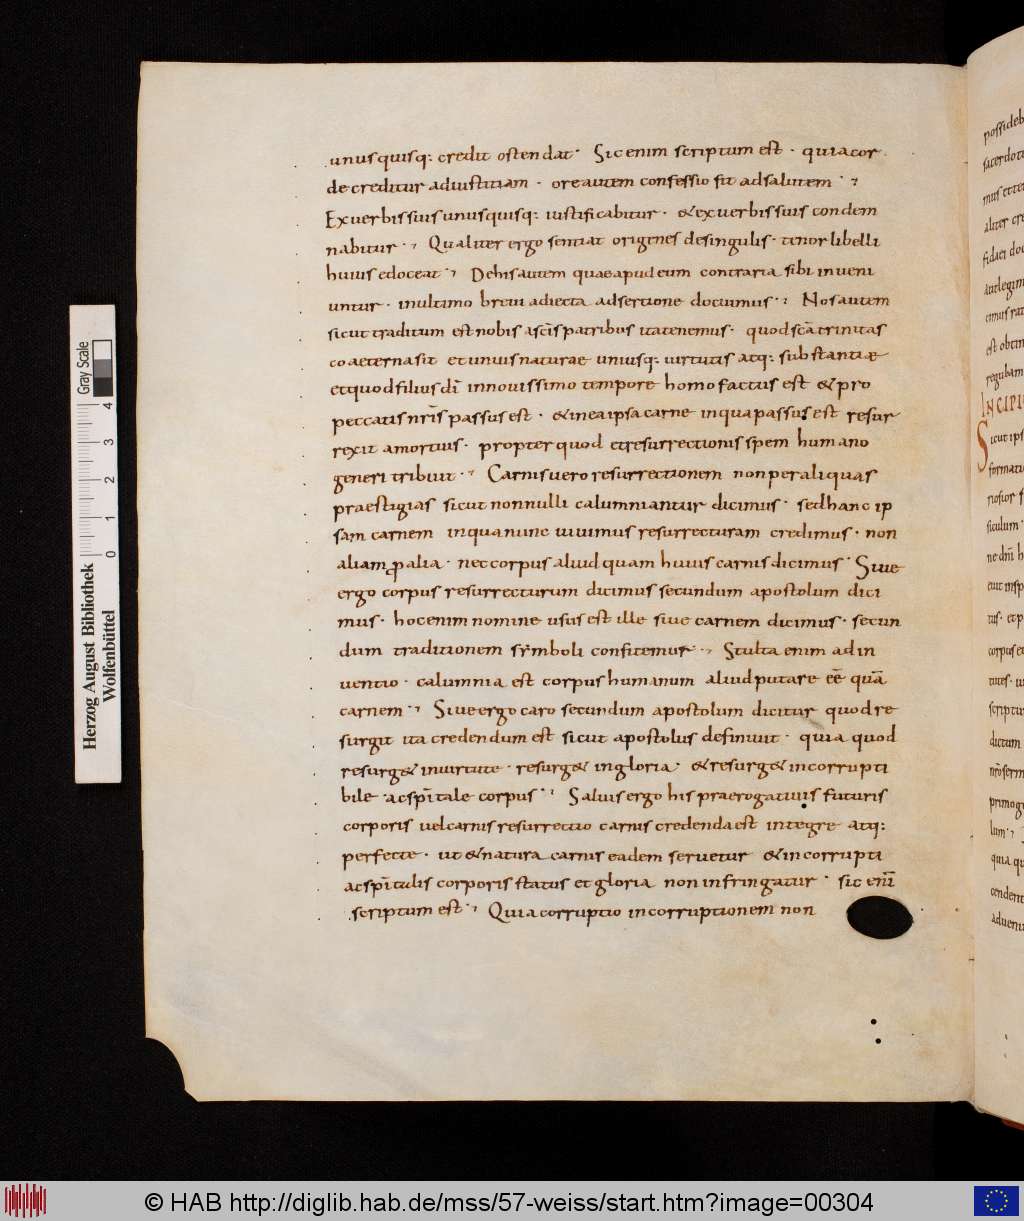 unusquisq: credit ostendat· Sicenim scriptum est · quiacor
de creditur adiustitiam · oreautem confessio fit adsalutem ·;
Exuerbissuis unusquisq: iustificabitur · &exuerbissuis condem
nabitur ·; Qualiter ergo sentiat origenes desingulis · tenor libelli
huius edoceat ·; Dehisautem quaeapudeum contraria sibi inueni
untur · inultimo breui adiecta adsertione docuimus ·; Nosautem
sicut traditum est nobis asc̄ispatribus itatenemus · quodsc̄atrinitas
coaeternasit et unuisnaturae uniusq: uirtutis atq: substantiae
etquodfilius dī innouissimo tempore homofactus est & pro
peccatis nr̄is passus est · &ineaipsa carne inquapassus est resur
rexit amortuis · propter quod etresurrectionis spem humano
generi tribuit ·; Carnisuero resurrectionem nonper aliquas
praestigias sicut nonnulli calumniantur dicimus · sedhanc ip
sam carnem inquanunc uiuimus resurrecturam credimus · non
aliam ꝓ alia · nec corpus aliud quam huius carnis dicimus · Siue
ergo corpus resurrecturum dicimus secundum apostolum dici
mus · hocenim nomine usus est ille siue carnem dicimus · secun
dum traditionem symboli confitemur ·; Stulta enim adin
uentio · calumnia est corpus humanum aliud putare eē quā
carnem ·; Siueergo caro secundum apostolum dicitur quod re
surgit ita credendum est sicut apostolus definiuit · quia quod
resurg& inuirtute · resurg& ingloria · &resurg& incorrupti
bile · acsp̄itale corpus ·; Saluis ergo his praerogatiuis futuris
corporis uel carnis resurrectio carnis credenda est integre atq:
perfecte · ut &natura carnis eadem seruetur &incorrupti
acsp̄italis corporis status et gloria non infringatur · sic enī
scriptum est ·; Quia corruptio incorruptionem non
possideb
sacerdot
aliter cre
est obtin
regulam
INCIPI
Sicut ips
formatu
siculum
corpus et
scriptur
dictum
primog
lum ·;
quia qu
Herzog August Bibliothek
Wolfenbüttel
Gray Scale
0 1 2 3 4
© HAB http://diglib.hab.de/mss/57-weiss/start.htm?image=00304